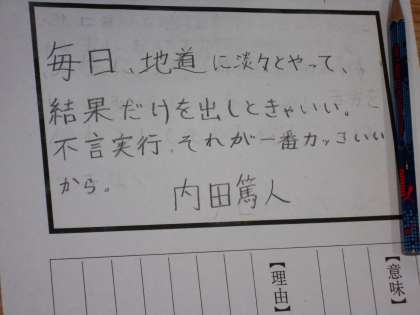 毎日、地道に淡々とやって、
結果だけを出しときゃいい。
不言実行、それが一番カッコいい
から。 内田篤人
【意味】
【理由】